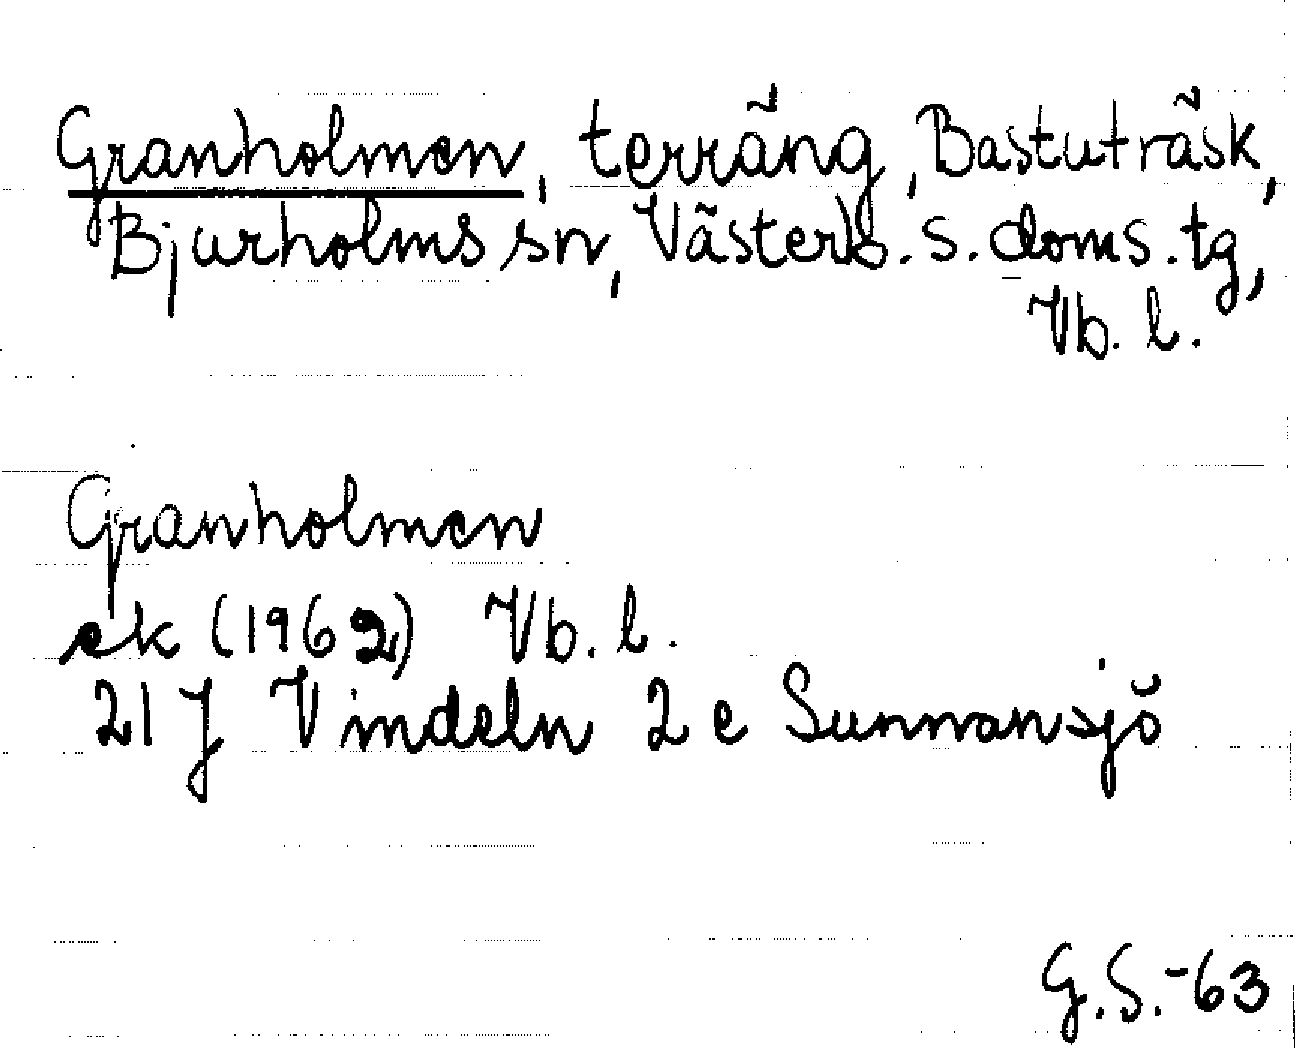 Granholmen, terräng, Bastuträsk,
Bjurholms sn, Västerb. s. doms. tg,
Vb. l.
Granholmen
ek (1962) Vb. l.
21 J Vindeln 2 e Sunnansjö
G.S.-63